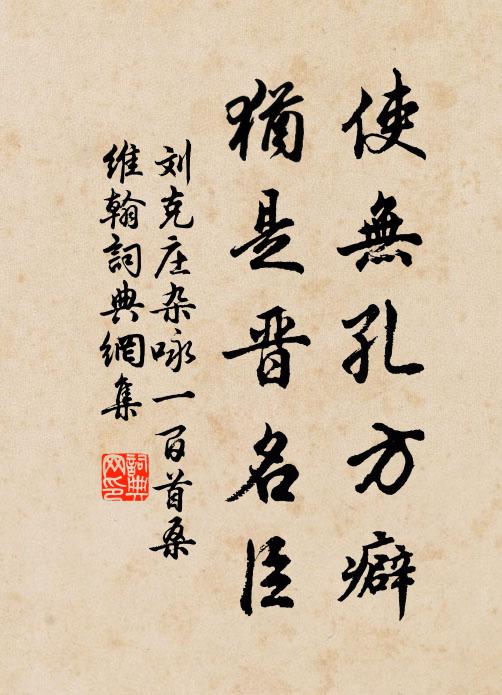 使無孔方癖
猶是晋名臣
刘克庄杂咏一百首桑
維翰詞典網集
詞典
网印